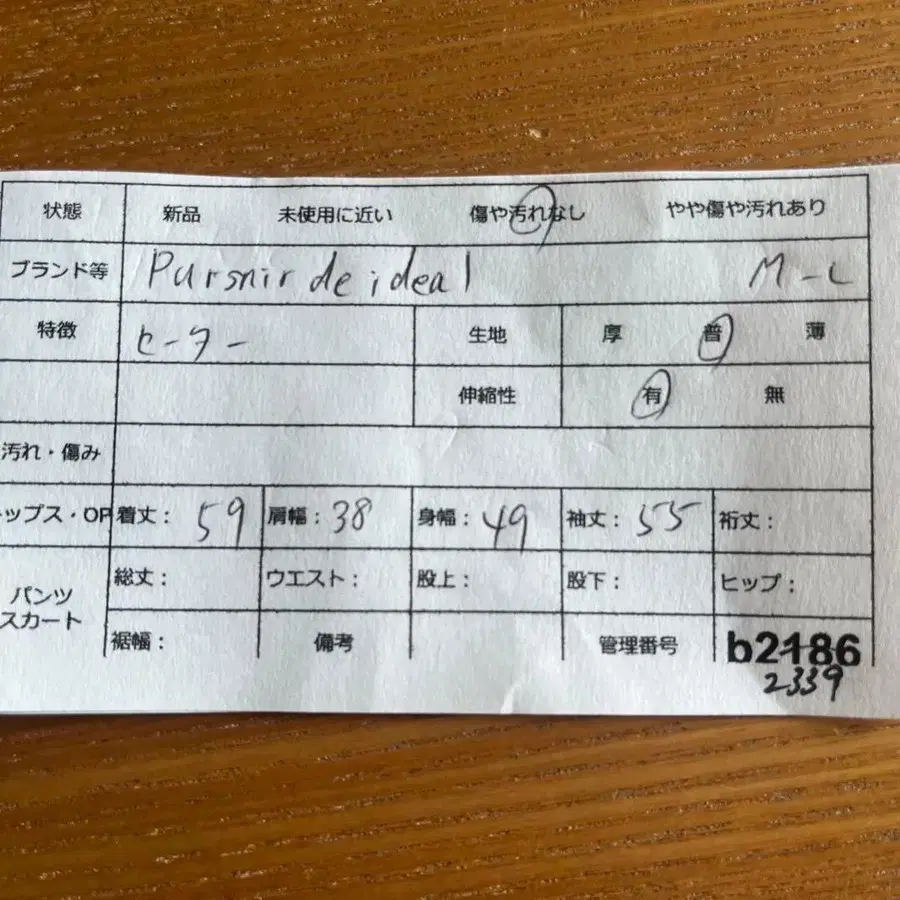 状態 新品 未使用に近い 傷や汚れなし やや傷や汚れあり
ブランド等 Pursnir de ideal M-L
特徴 セーター 生地 厚 普 薄
伸縮性 有 無
汚れ・傷み
ップス・OP 着丈： 59 肩幅： 38 身幅： 49 袖丈： 55 裄丈：
パンツ 総丈： ウエスト： 股上： 股下： ヒップ：
スカート 裾幅： 備考 管理番号 b2186
2339